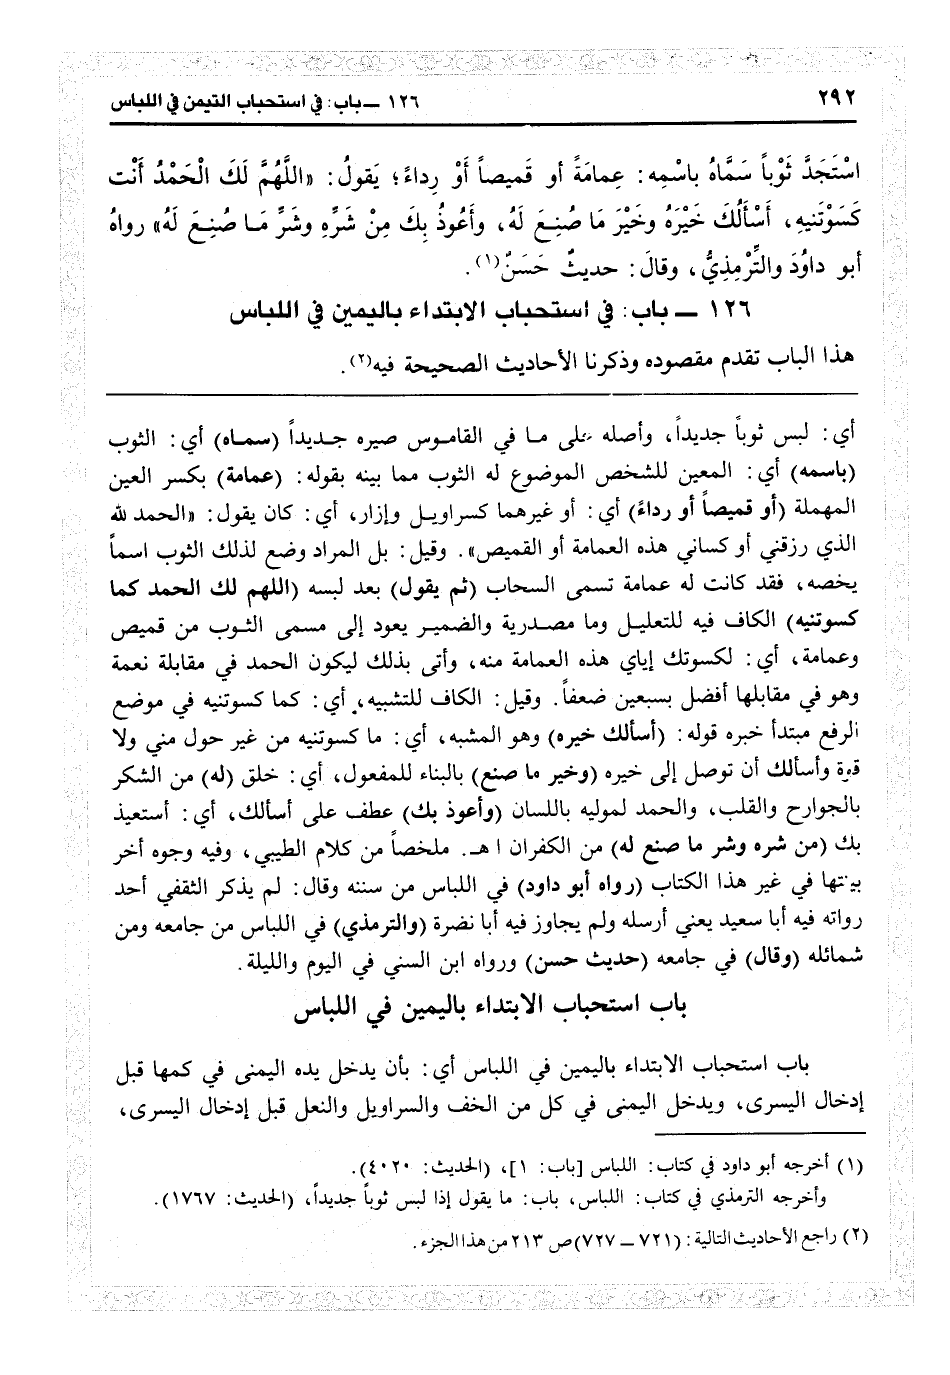 ٢٩٢
١٢٦ ــ باب: في استحباب التيمن في اللباس
اسْتَجَدَّ ثَوْباً سَمَّاهُ باسْمِه: عِمامَةً أو قَميصاً أَوْ رِداءً؛ يَقولُ: «اللَّهُمَّ لَكَ الْحَمْدُ أَنْت
كَسَوْتَنيهِ، أَسْأَلُكَ خَيْرَهُ وخَيْرَ مَا صُنِعَ لَهُ، وأَعُوذُ بِكَ مِنْ شَرِّهِ وشَرِّ مَا صُنِعَ لَهُ» رواهُ
أبو داوُدَ والتِّرْمِذِيُّ، وقالَ: حديثٌ حَسَنٌ(١).
١٢٦ ــ باب: في استحباب الابتداء باليمين في اللباس
هذا الباب تقدم مقصوده وذكرنا الأحاديث الصحيحة فيه(٢).
أي: لبس ثوباً جديداً، وأصله على ما في القاموس صيره جديداً (سماه) أي: الثوب
(باسمه) أي: المعين للشخص الموضوع له الثوب مما بينه بقوله: (عمامة) بكسر العين
المهملة (أو قميصاً أو رداءً) أي: أو غيرهما كسراويل وإزار، أي: كان يقول: «الحمد لله
الذي رزقني أو كساني هذه العمامة أو القميص». وقيل: بل المراد وضع لذلك الثوب اسماً
يخصه، فقد كانت له عمامة تسمى السحاب (ثم يقول) بعد لبسه (اللهم لك الحمد كما
كسوتنيه) الكاف فيه للتعليل وما مصدرية والضمير يعود إلى مسمى الثوب من قميص
وعمامة، أي: لكسوتك إياي هذه العمامة منه، وأتى بذلك ليكون الحمد في مقابلة نعمة
وهو في مقابلها أفضل بسبعين ضعفاً. وقيل: الكاف للتشبيه، أي: كما كسوتنيه في موضع
الرفع مبتدأ خبره قوله: (أسألك خيره) وهو المشبه، أي: ما كسوتنيه من غير حول مني ولا
قوة وأسألك أن توصل إلى خيره (وخير ما صنع) بالبناء للمفعول، أي: خلق (له) من الشكر
بالجوارح والقلب، والحمد لموليه باللسان (وأعوذ بك) عطف على أسألك، أي: أستعيذ
بك (من شره وشر ما صنع له) من الكفران ا هـ. ملخصاً من كلام الطيبي، وفيه وجوه أخر
بينتها في غير هذا الكتاب (رواه أبو داود) في اللباس من سننه وقال: لم يذكر الثقفي أحد
رواته فيه أبا سعيد يعني أرسله ولم يجاوز فيه أبا نضرة (والترمذي) في اللباس من جامعه ومن
شمائله (وقال) في جامعه (حديث حسن) ورواه ابن السني في اليوم والليلة.
باب استحباب الابتداء باليمين في اللباس
باب استحباب الابتداء باليمين في اللباس أي: بأن يدخل يده اليمنى في كمها قبل
إدخال اليسرى، ويدخل اليمنى في كل من الخف والسراويل والنعل قبل إدخال اليسرى،
(١) أخرجه أبو داود في كتاب: اللباس [باب: ١]، (الحديث: ٤٠٢٠).
وأخرجه الترمذي في كتاب: اللباس، باب: ما يقول إذا لبس ثوباً جديداً، (الحديث: ١٧٦٧).
(٢) راجع الأحاديث التالية: (٧٢١ ــ ٧٢٧) ص ٢١٣ من هذا الجزء.